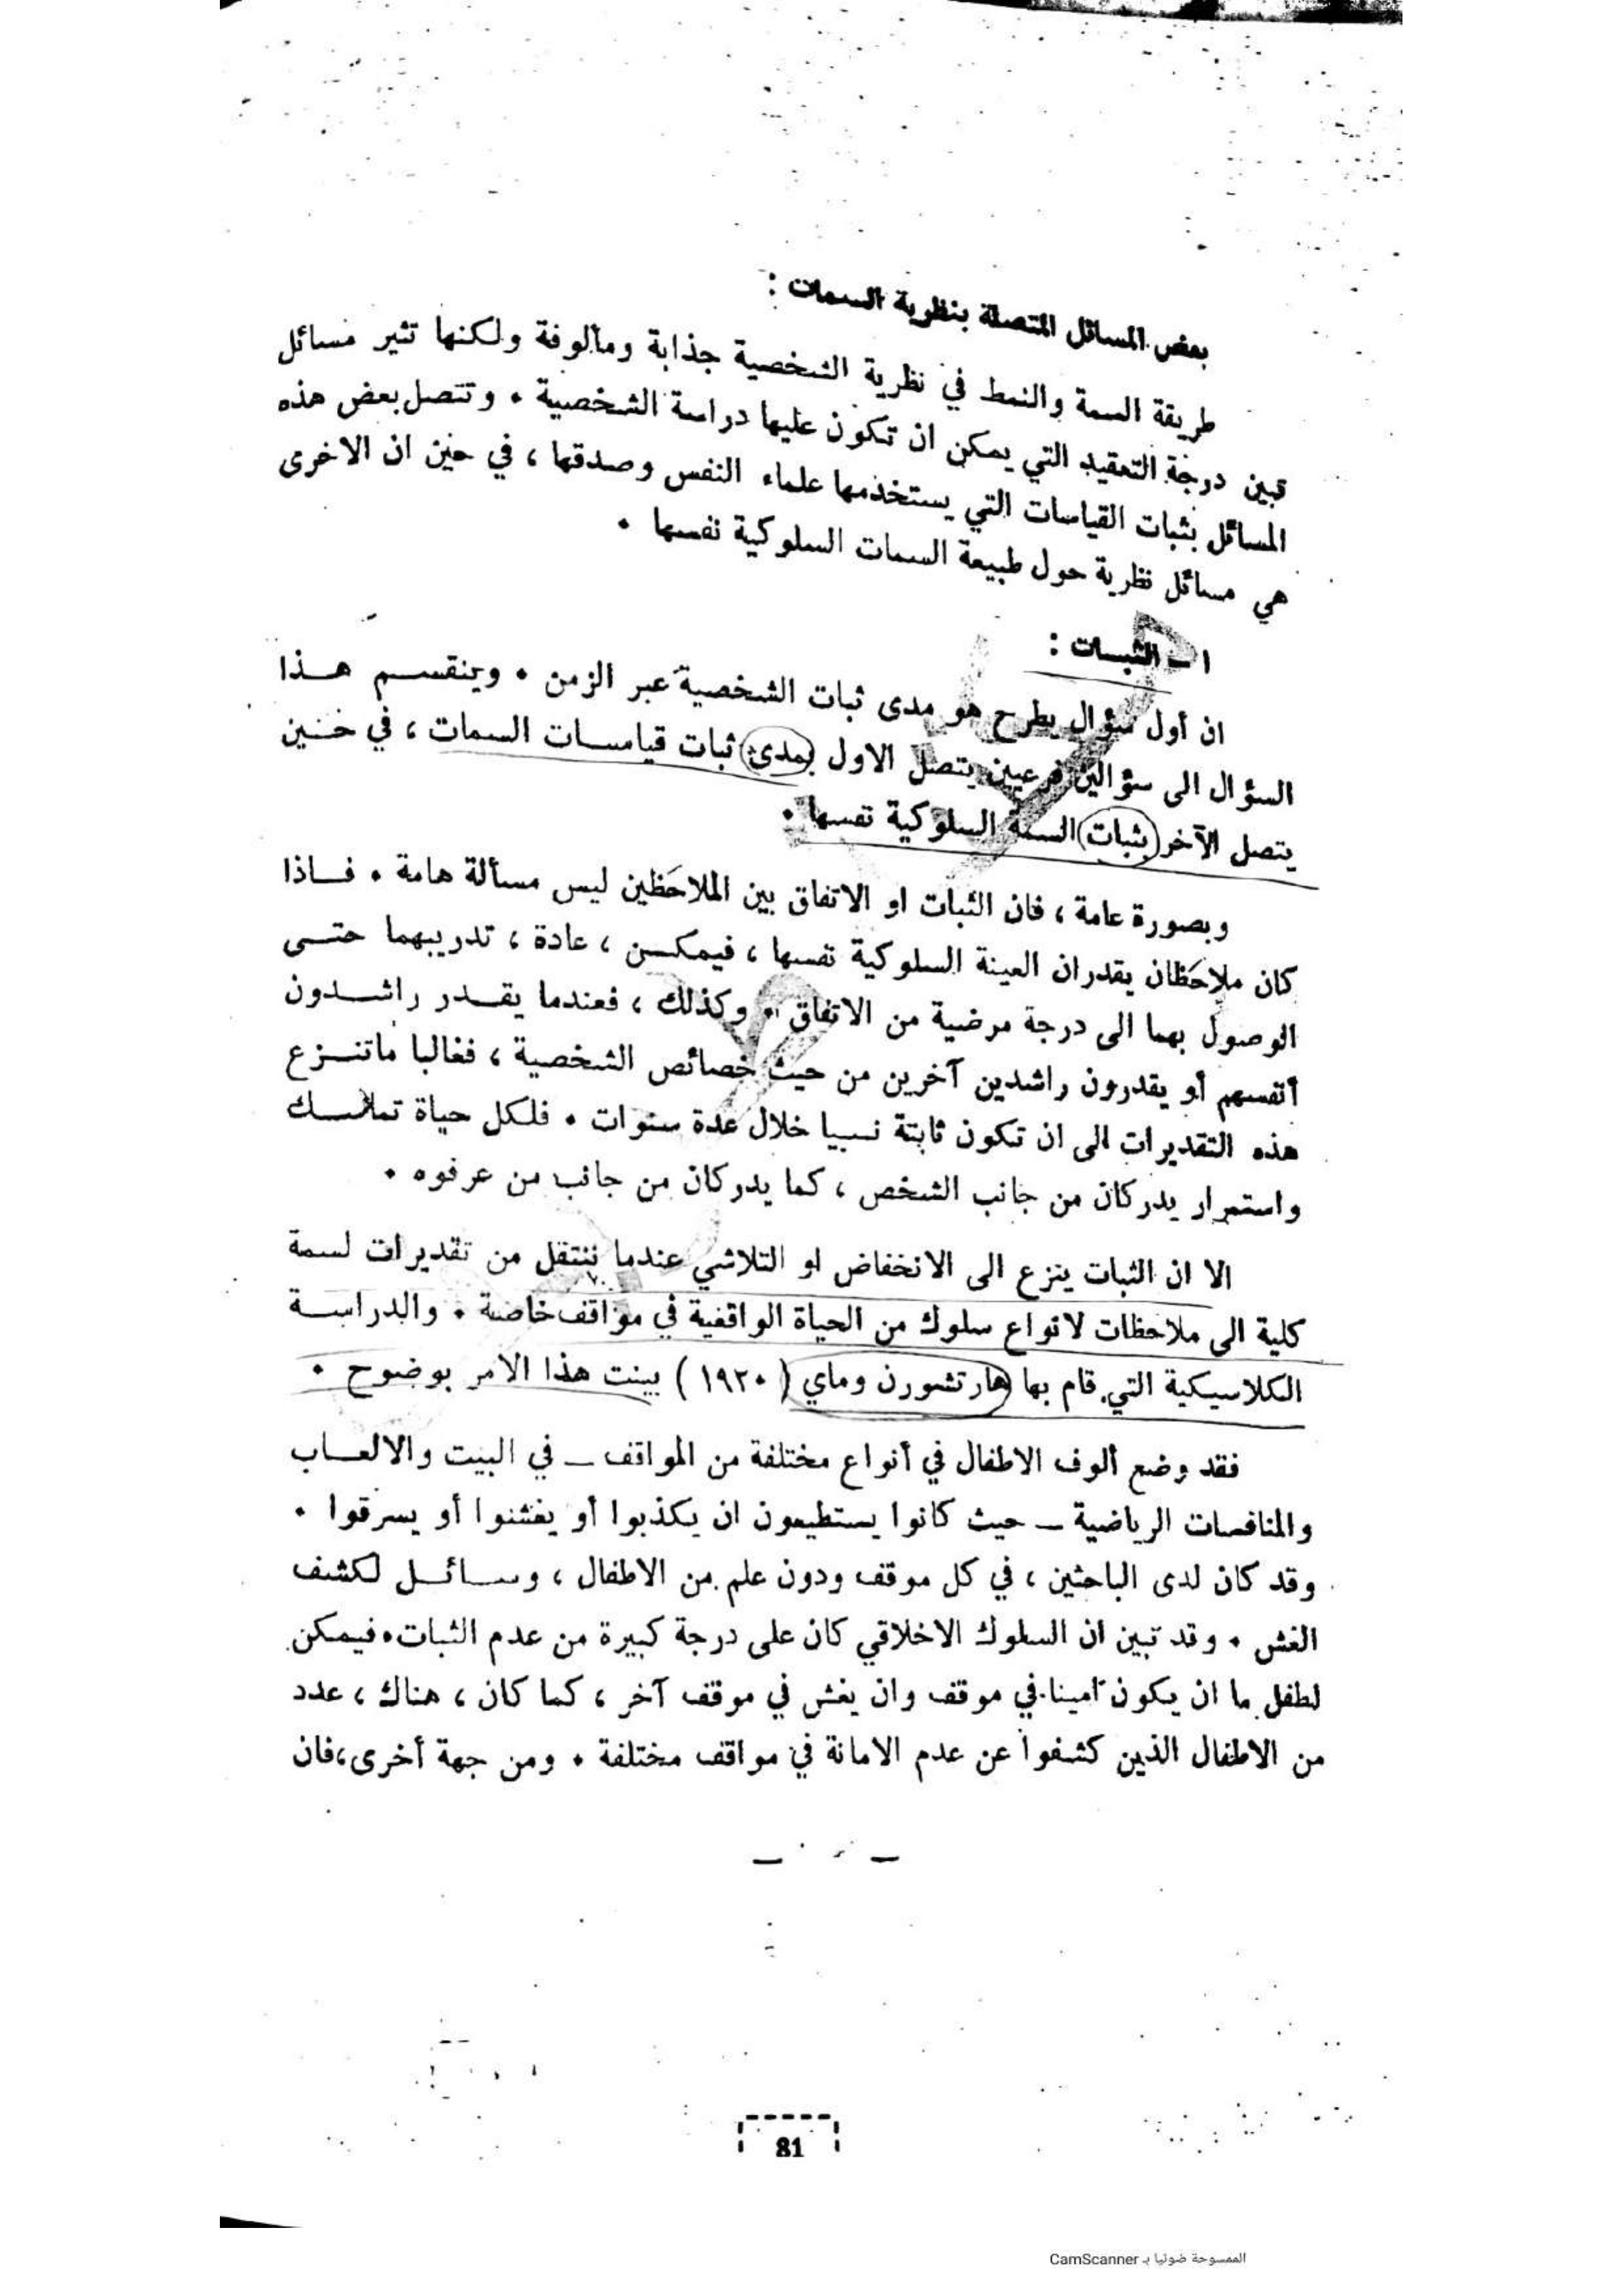 بعض المسائل المتصلة بنظرية السمات :
طريقة السمة والنمط في نظرية الشخصية جذابة ومألوفة ولكنها تثير مسائل
تبين درجة التعقيد التي يمكن ان تكون عليها دراسة الشخصية ٠ وتتصل بعض هذه
المسائل بثبات القياسات التي يستخدمها علماء النفس وصدقها ، في حين ان الاخرى
هي مسائل نظرية حول طبيعة السمات السلوكية نفسها ٠
١ – الثبــات :
ان أول سؤال يطرح هو مدى ثبات الشخصية عبر الزمن ٠ وينقســم هــذا
السؤال الى سؤالين فرعيين يتصل الاول بمدى ثبات قياســات السمات ، في حــين
يتصل الآخر بثبات السمة السلوكية نفسها ٠
وبصورة عامة ، فان الثبات او الاتفاق بين الملاحَظين ليس مسألة هامة ٠ فــاذا
كان ملاحَظان يقدران العينة السلوكية نفسها ، فيمكــن ، عادة ، تدريبهما حتــى
الوصول بهما الى درجة مرضية من الاتفاق ٠ وكذلك ، فعندما يقــدر راشــدون
أنفسهم أو يقدرون راشدين آخرين من حيث خصائص الشخصية ، فغالبا ماتنــزع
هذه التقديرات الى ان تكون ثابتة نسبيا خلال عدة سنوات ٠ فلكل حياة تماســك
واستمرار يدركان من جانب الشخص ، كما يدركان من جانب من عرفوه ٠
الا ان الثبات ينزع الى الانخفاض او التلاشي عندما ننتقل من تقديرات لسمة
كلية الى ملاحظات لانواع سلوك من الحياة الواقعية في مواقف خاصة ٠ والدراســة
الكلاسيكية التي قام بها هارتشورن وماي ( ١٩٢٠ ) بينت هذا الامر بوضوح ٠
فقد وضع ألوف الاطفال في أنواع مختلفة من المواقف – في البيت والالعــاب
والمنافسات الرياضية – حيث كانوا يستطيعون ان يكذبوا أو يغشوا أو يسرقوا ٠
وقد كان لدى الباحثين ، في كل موقف ودون علم من الاطفال ، وســائــل لكشف
الغش ٠ وقد تبين ان السلوك الاخلاقي كان على درجة كبيرة من عدم الثبات٠ فيمكن
لطفل ما ان يكون امينا في موقف وان يغش في موقف آخر ، كما كان ، هناك ، عدد
من الاطفال الذين كشفوا عن عدم الامانة في مواقف مختلفة ٠ ومن جهة أخرى،فان
81
الممسوحة ضوئيا بـ CamScanner